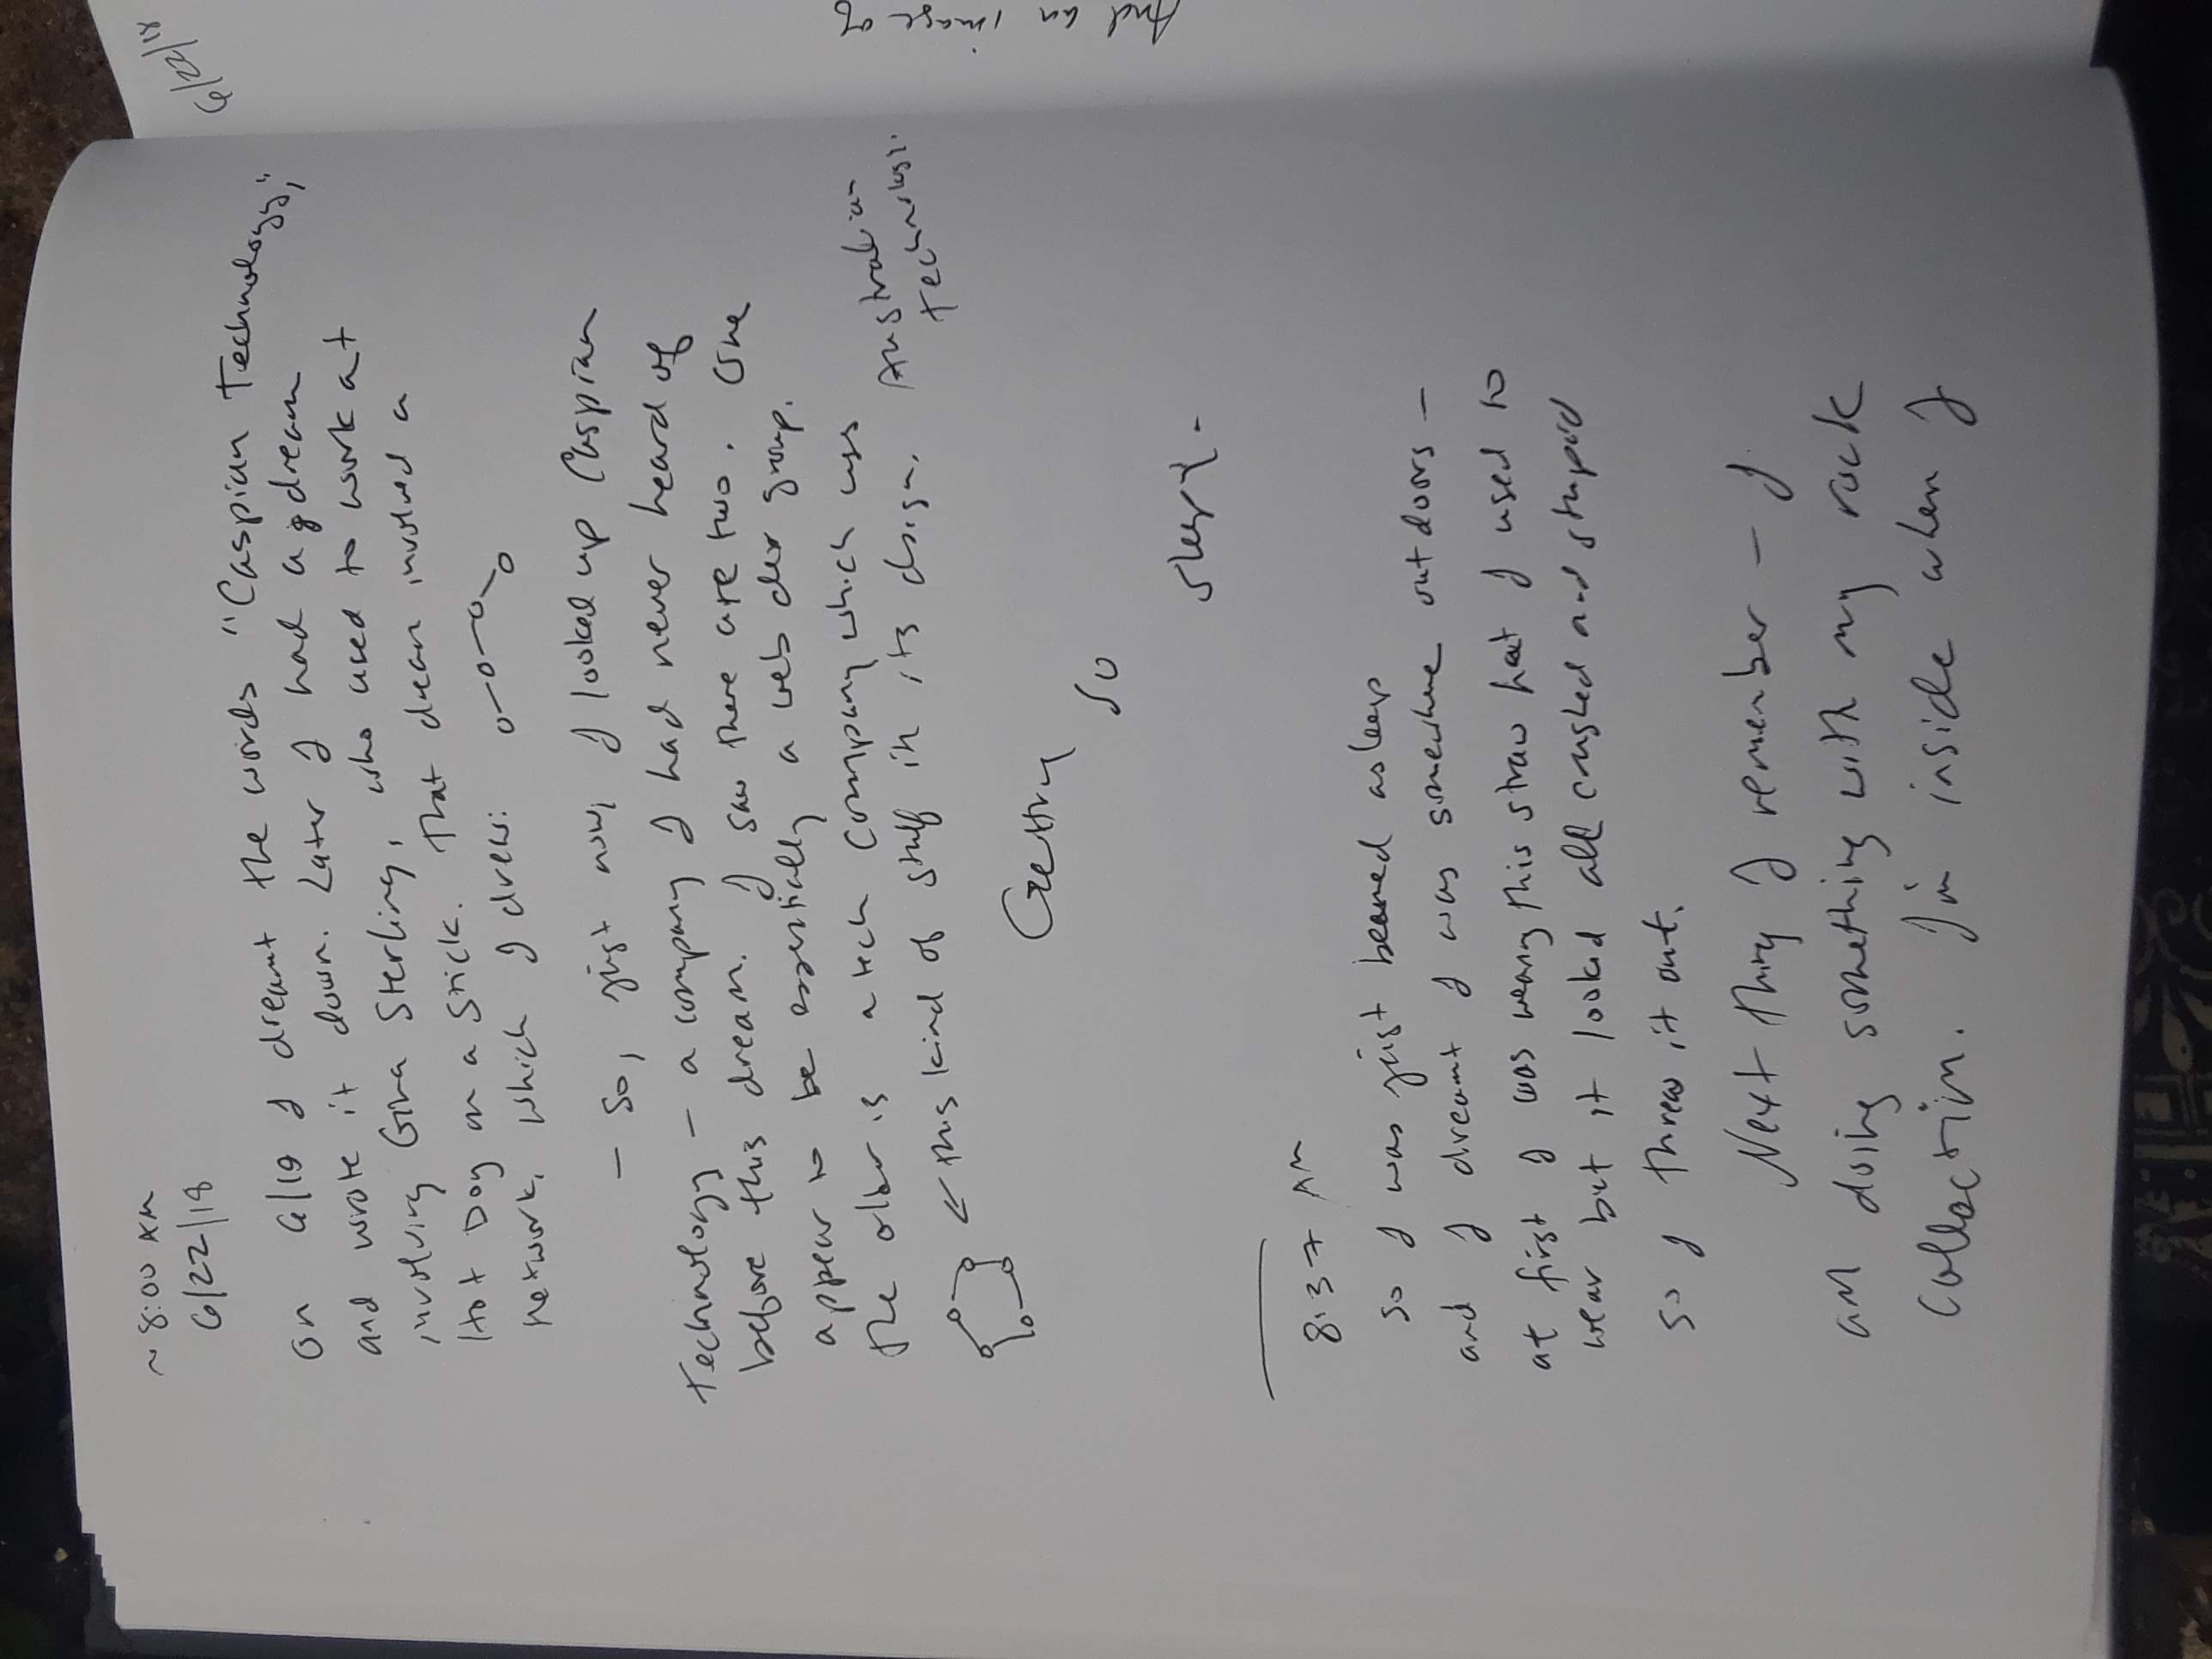 ~ 8:00 AM
6/22/18
On 6/19 I dreamt the words "Caspian Technology,"
and wrote it down. Later I had a dream
involving Gina Sterling, who used to work at
Hot Dog on a Stick. That dream involved a
network, which I drew:
- So, just now, I looked up Caspian
Technology - a company I had never heard of
before this dream. I saw there are two. One
appear to be essentially a web dev group.
The other is a tech company which uses
← this kind of stuff in its design. Australian
technology.
Getting so
sleepy -
8:37 AM
So I was just beamed asleep
and I dreamt I was somewhere outdoors -
at first I was wearing this straw hat I used to
wear but it looked all crushed and stupid
so I threw it out.
Next thing I remember - I
am doing something with my rock
collection. I'm inside when I
6/22/18
And an image of